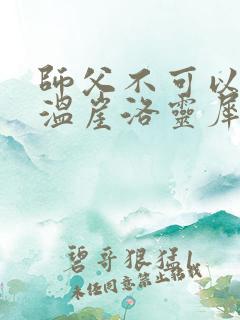 師父不可以
溫崖洛靈犀
碧哥狠猛1
未任同意禁止轉載